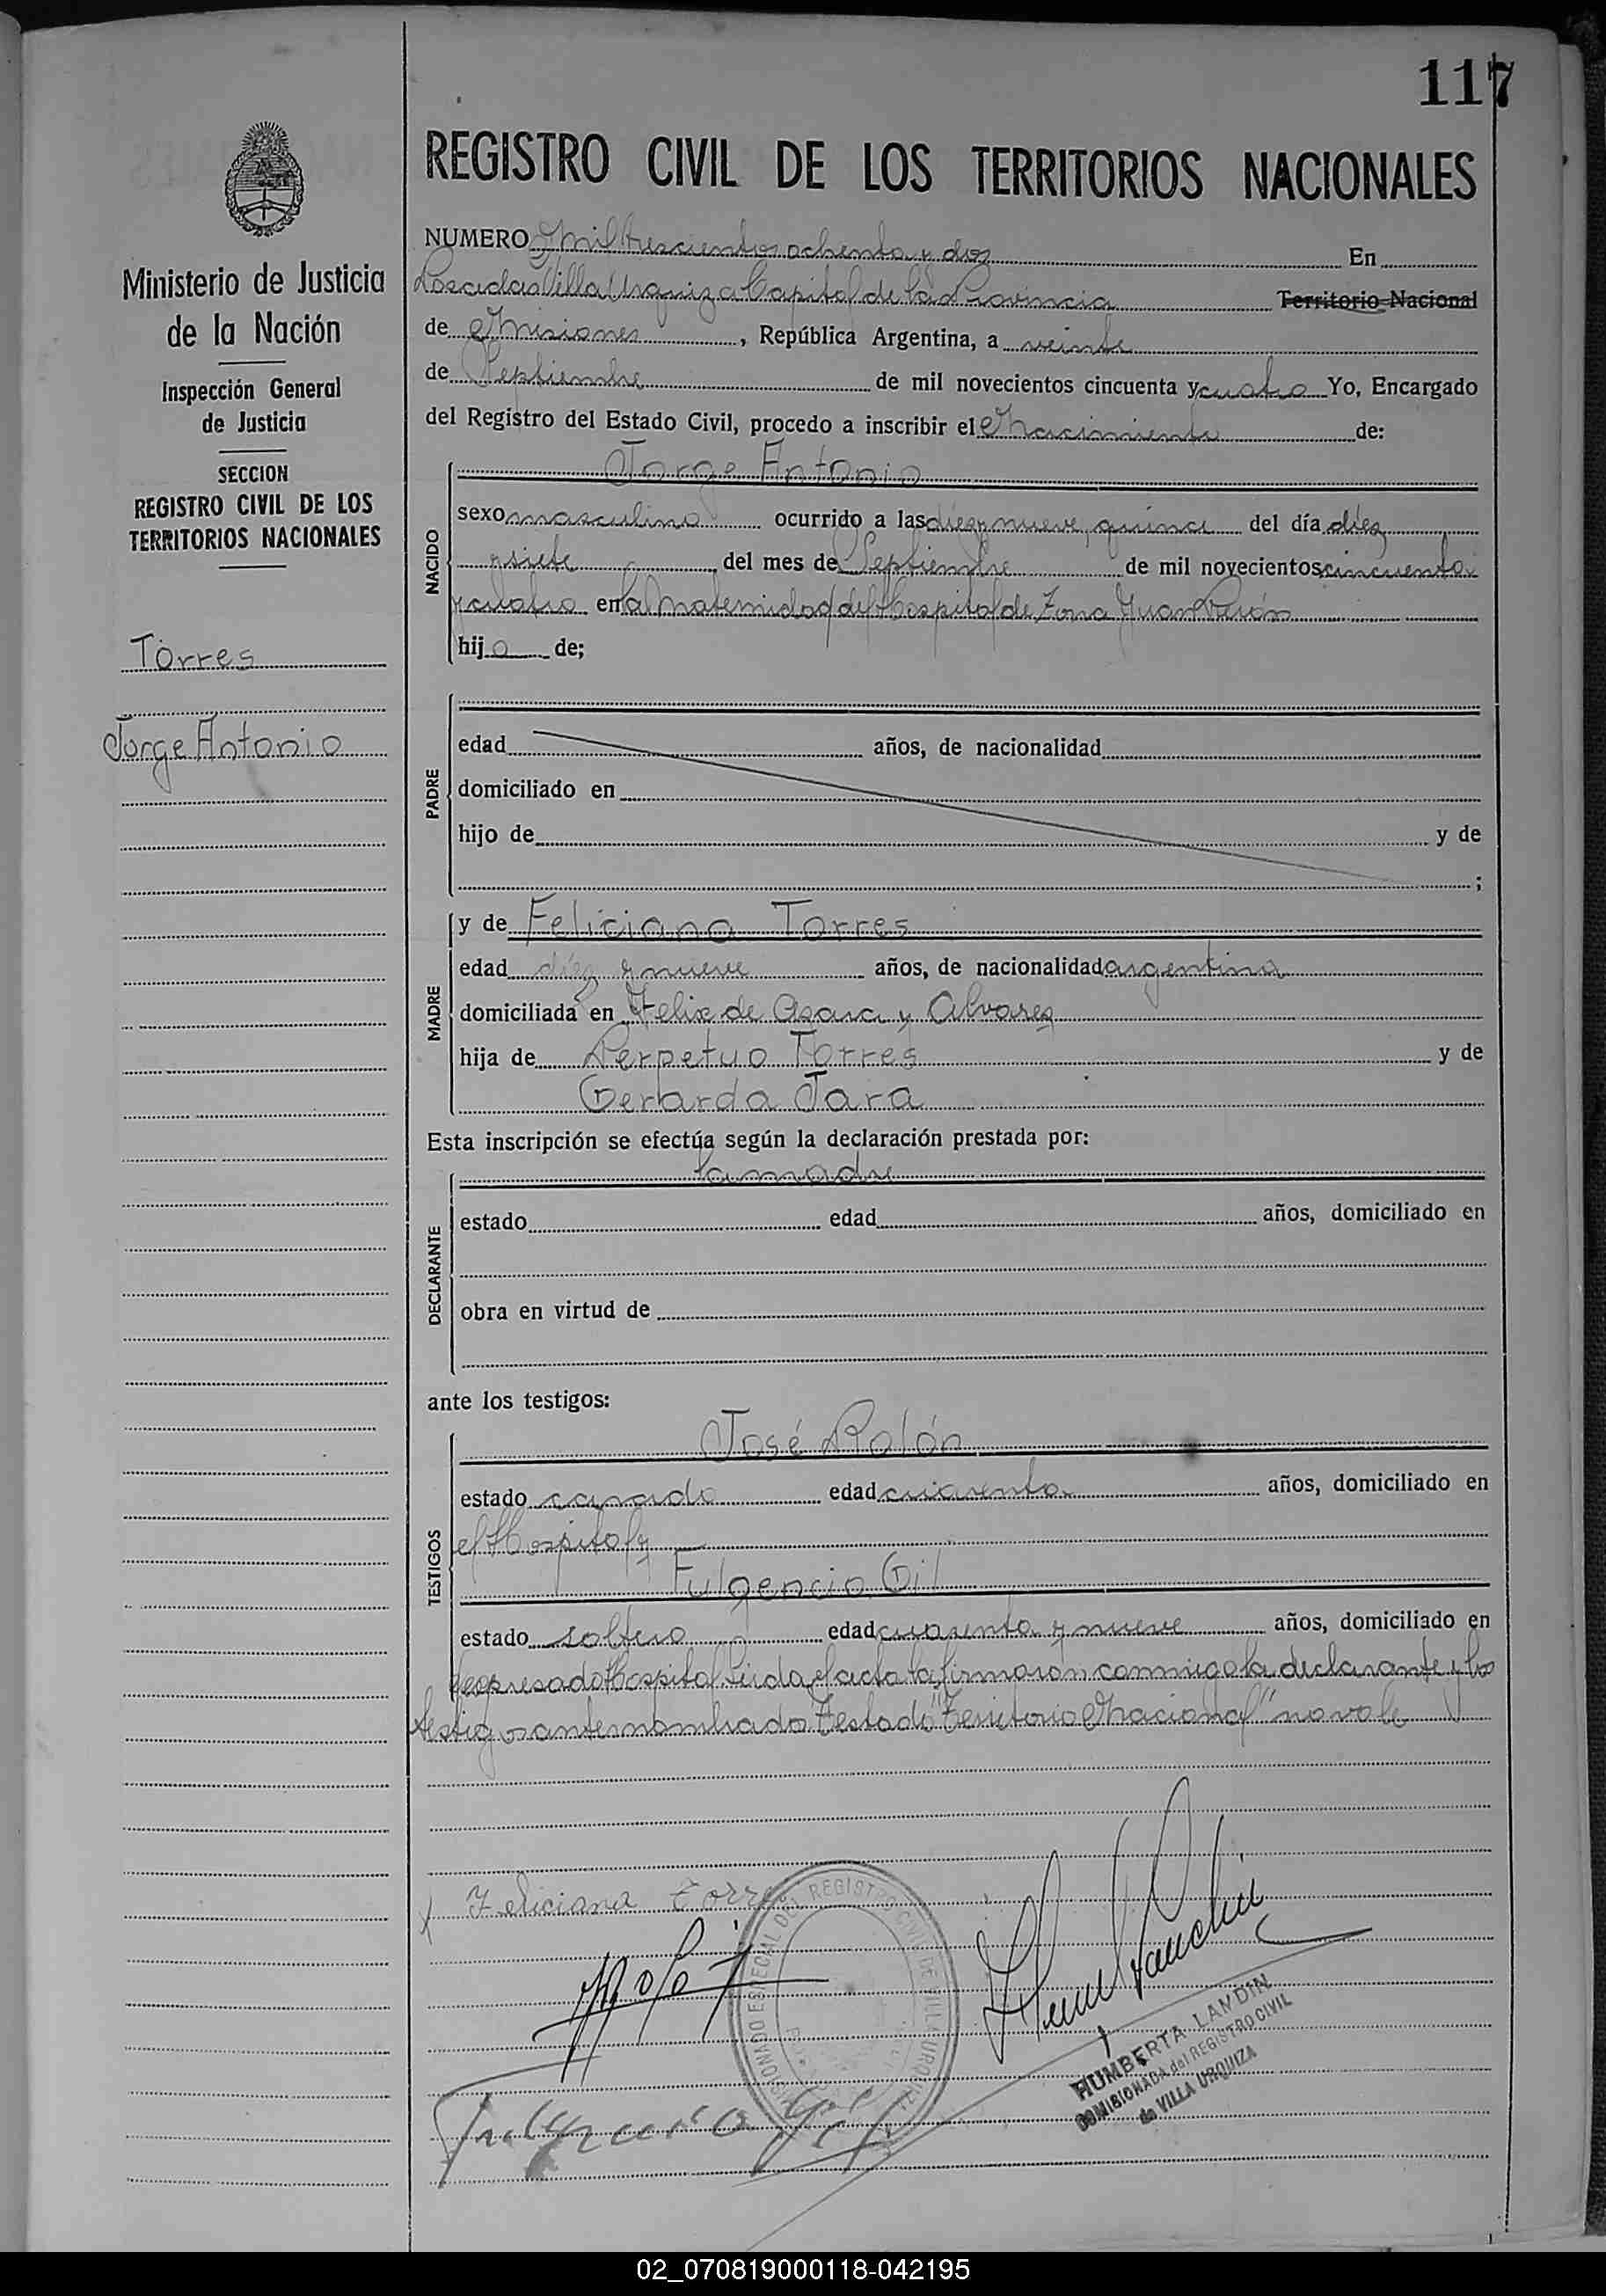 117
REGISTRO CIVIL DE LOS TERRITORIOS NACIONALES
Ministerio de Justicia
de la Nación
Inspección General
de Justicia
SECCION
REGISTRO CIVIL DE LOS
TERRITORIOS NACIONALES
Torres
Jorge Antonio
NUMERO Mil trescientos ochenta y dos En
Posadas Villa Urquiza Capital de la Provincia Territorio Nacional
de Misiones, República Argentina, a veinte
de Septiembre de mil novecientos cincuenta y cuatro Yo, Encargado
del Registro del Estado Civil, procedo a inscribir el Nacimiento de:
NACIDO
Jorge Antonio
sexo masculino ocurrido a las diez y nueve, quince del día diez
y siete del mes de Septiembre de mil novecientos cincuenta
y cuatro en la Maternidad del Hospital de Zona Juan Perón
hijo de;
PADRE
edad años, de nacionalidad
domiciliado en
hijo de y de
;
MADRE
y de Feliciana Torres
edad diez y nueve años, de nacionalidad argentina
domiciliada en Felix de Asara y Alvarez
hija de Perpetuo Torres y de
Gerarda Jara
Esta inscripción se efectúa según la declaración prestada por:
DECLARANTE
la madre
estado edad años, domiciliado en
obra en virtud de
ante los testigos:
TESTIGOS
José Rolón
estado casado edad cuarenta años, domiciliado en
el Hospital y
Fulgencio Gil
estado soltero edad cuarenta y nueve años, domiciliado en
expresado Hospital Leida el acta la firmaron conmigo la declarante y los
testigos antes nombrado Testado "Territorio Nacional" no vale
Feliciana Torre
REGISTRO CIVIL DE VILLA URQUIZA
HUMBERTA LANDIN
COMISIONADA del REGISTRO CIVIL
de VILLA URQUIZA
02_070819000118-042195